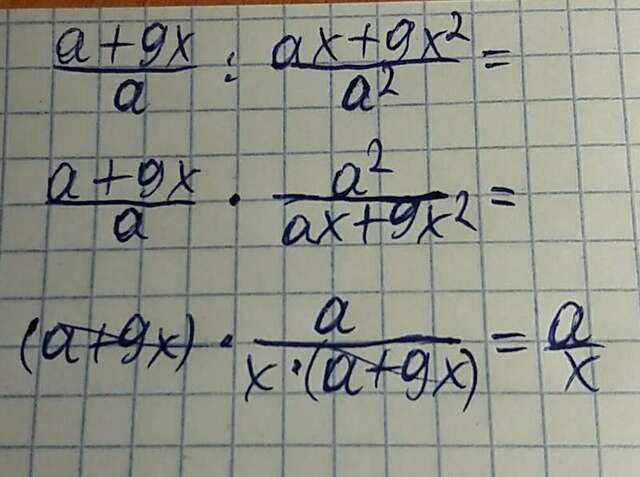 (a+9x)/a : (ax+9x²)/a² =
(a+9x)/a · a²/(ax+9x²) =
(a+9x) · a/(x·(a+9x)) = a/x